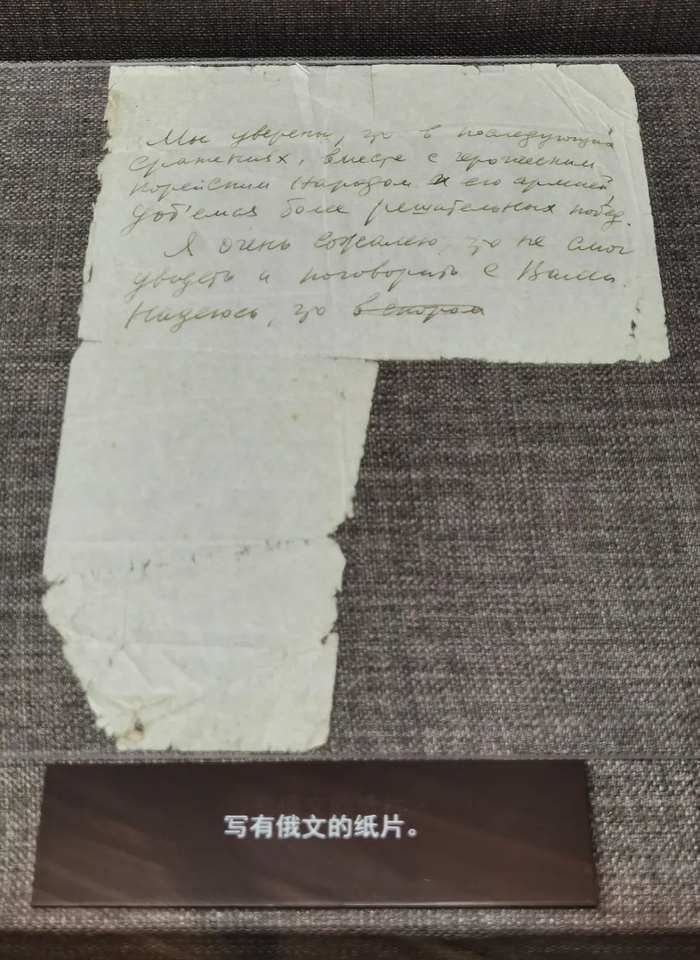 Мы уверены, что в последующих
сражениях, вместе с героическим
корейским народом и его армией
доб'емся более решательных побед.
Я очень сожалею, что не смог
увидеть и поговорить с Вами.
Надеюсь, что в скором
写有俄文的纸片。